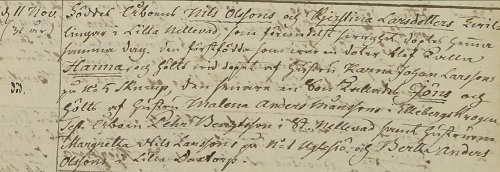 d. 11 Nov. Föddes Åboens Nils Olssons och Kjerstina Larsdotters
31 år lingar i Lilla Nellevad, som
samma dag. Den förstfödda som war en doter blef kallad
Hanna, och hölts wid dopet af hustrun Karna Johan Larssons
på N:o 4 Skurup, den senare en Son kallades Jöns och
hölts af hustrun Malena Anders Månssons i Ellebergskrogen
Test. Åboen Pehr Bengtsson i St. Nellevad samt hustrurna
Margretha Nils Larssons på N:o 1 och Bertha Anders
Olssons i Lilla